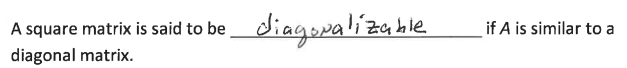 A square matrix is said to be diagonalizable if A is similar to a
diagonal matrix.